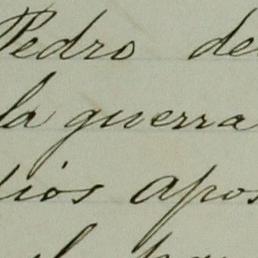 Pedro de
la guerra
dios apos